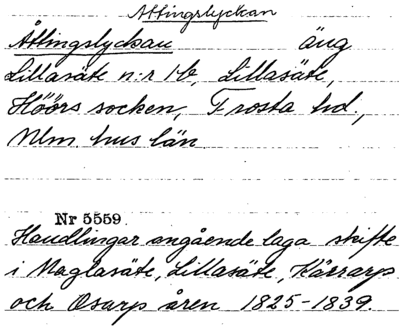 Åttingslyckan
Åttingslyckan äng
Lillasäte n:r 1 b, Lillasäte,
Höörs socken, Frosta hd,
Mlm. hus län
Nr 5559
Handlingar angående laga skifte
i Maglasäte, Lillasäte, Kärrarp
och Osarp åren 1825-1839.